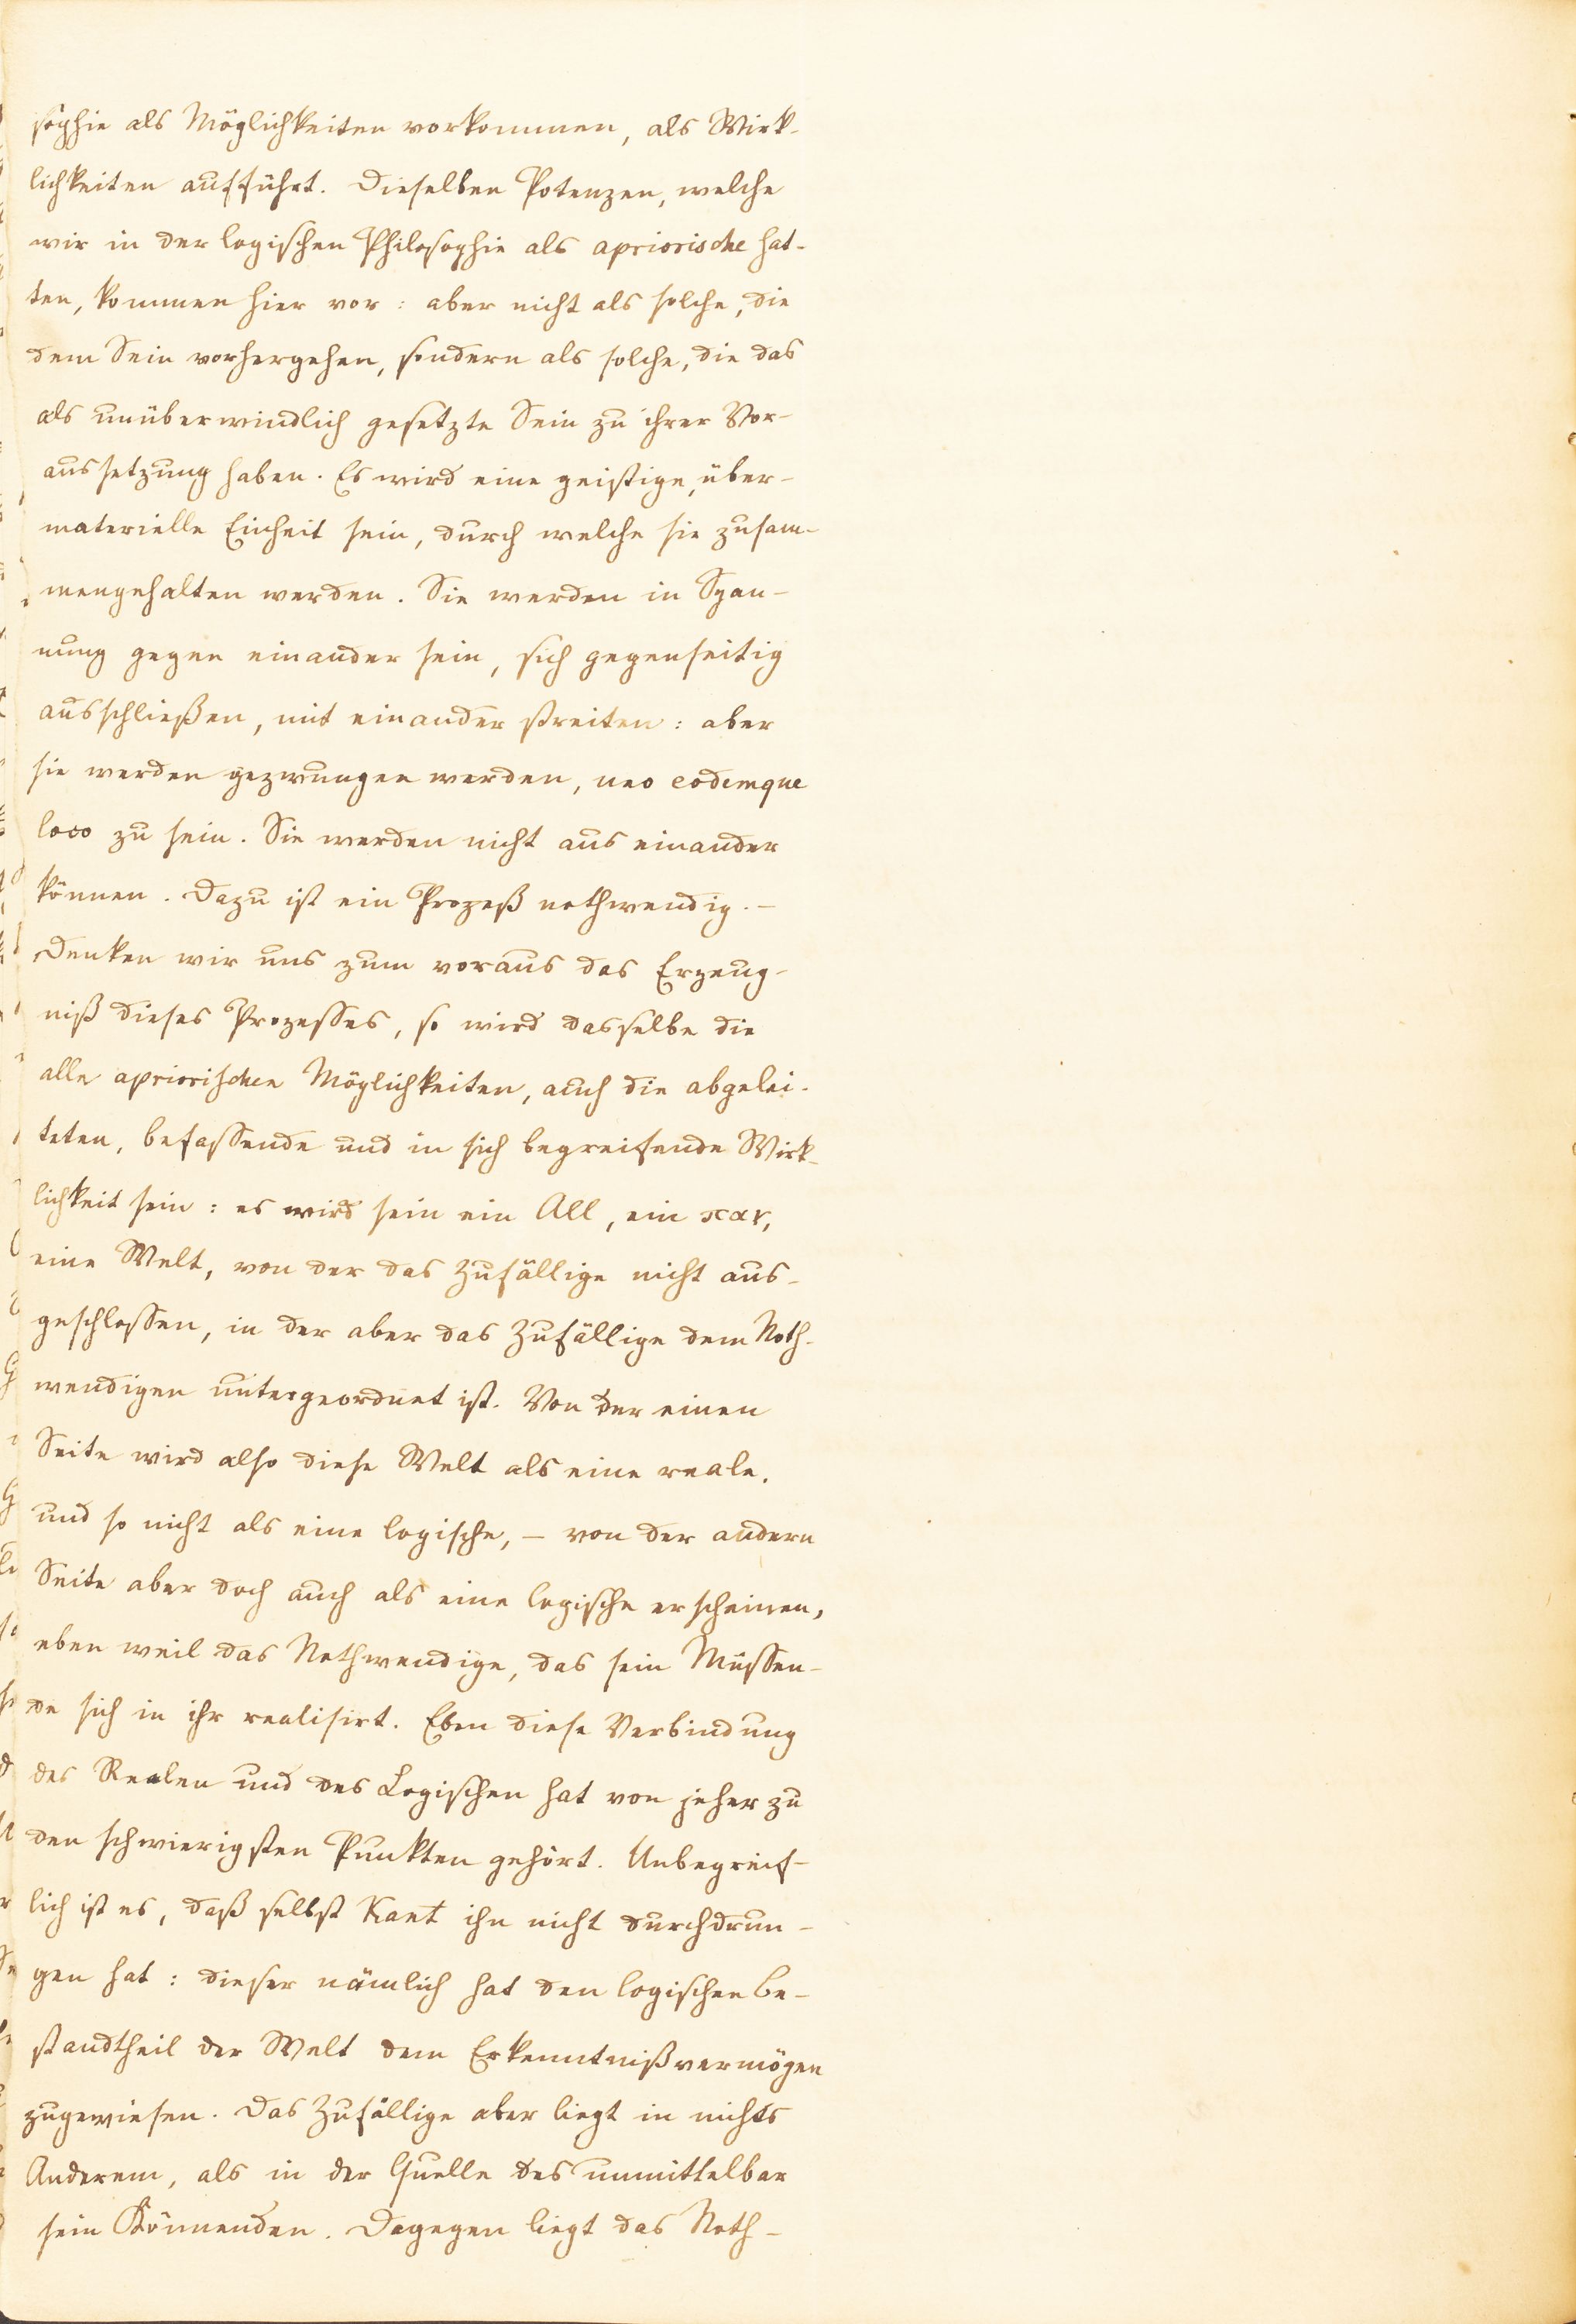 sophie als Möglichkeiten vorkommen, als Wirk-
lichkeiten aufführt. Dieselben Potenzen, welche
wir in der logischen Philosophie als apriorische hat-
ten, kommen hier vor: aber nicht als solche, die
dem Sein vorhergehen, sondern als solche, die das
als unüberwindlich gesetzte Sein zu ihrer Vor-
aussetzung haben. Es wird eine geistige, über-
materielle Einheit sein, durch welche sie zusam-
mengehalten werden. Sie werden in Span-
nung gegen einander sein, sich gegenseitig
ausschließen, mit einander streiten: aber
sie werden gezwungen werden, uno eodemque
loco zu sein. Sie werden nicht aus einander
können. Dazu ist ein Prozeß nothwendig. –
Denken wir uns zum voraus das Erzeug-
niß dieses Prozesses, so wird dasselbe die
alle apriorischen Möglichkeiten, auch die abgelei-
teten, befassende und in sich begreifende Wirk-
lichkeit sein: es wird sein ein All, ein παν,
eine Welt, von der das Zufällige nicht aus-
geschlossen, in der aber das Zufällige dem Noth-
wendigen untergeordnet ist. Von der einen
Seite wird also diese Welt als eine reale,
und so nicht als eine logische, – von der andern
Seite aber doch auch als eine logische erscheinen,
eben weil das Nothwendige, das sein Müssen-
de sich in ihr realisirt. Eben diese Verbindung
des Realen und des Logischen hat von jeher zu
den schwierigsten Punkten gehört. Unbegreif-
lich ist es, daß selbst Kant ihn nicht durchdrun-
gen hat: dieser nämlich hat den logischen Be-
standtheil der Welt dem Erkenntnißvermögen
zugewiesen. Das Zufällige aber liegt in nichts
Anderem, als in der Quelle des unmittelbar
sein Könnenden. Dagegen liegt das Noth-